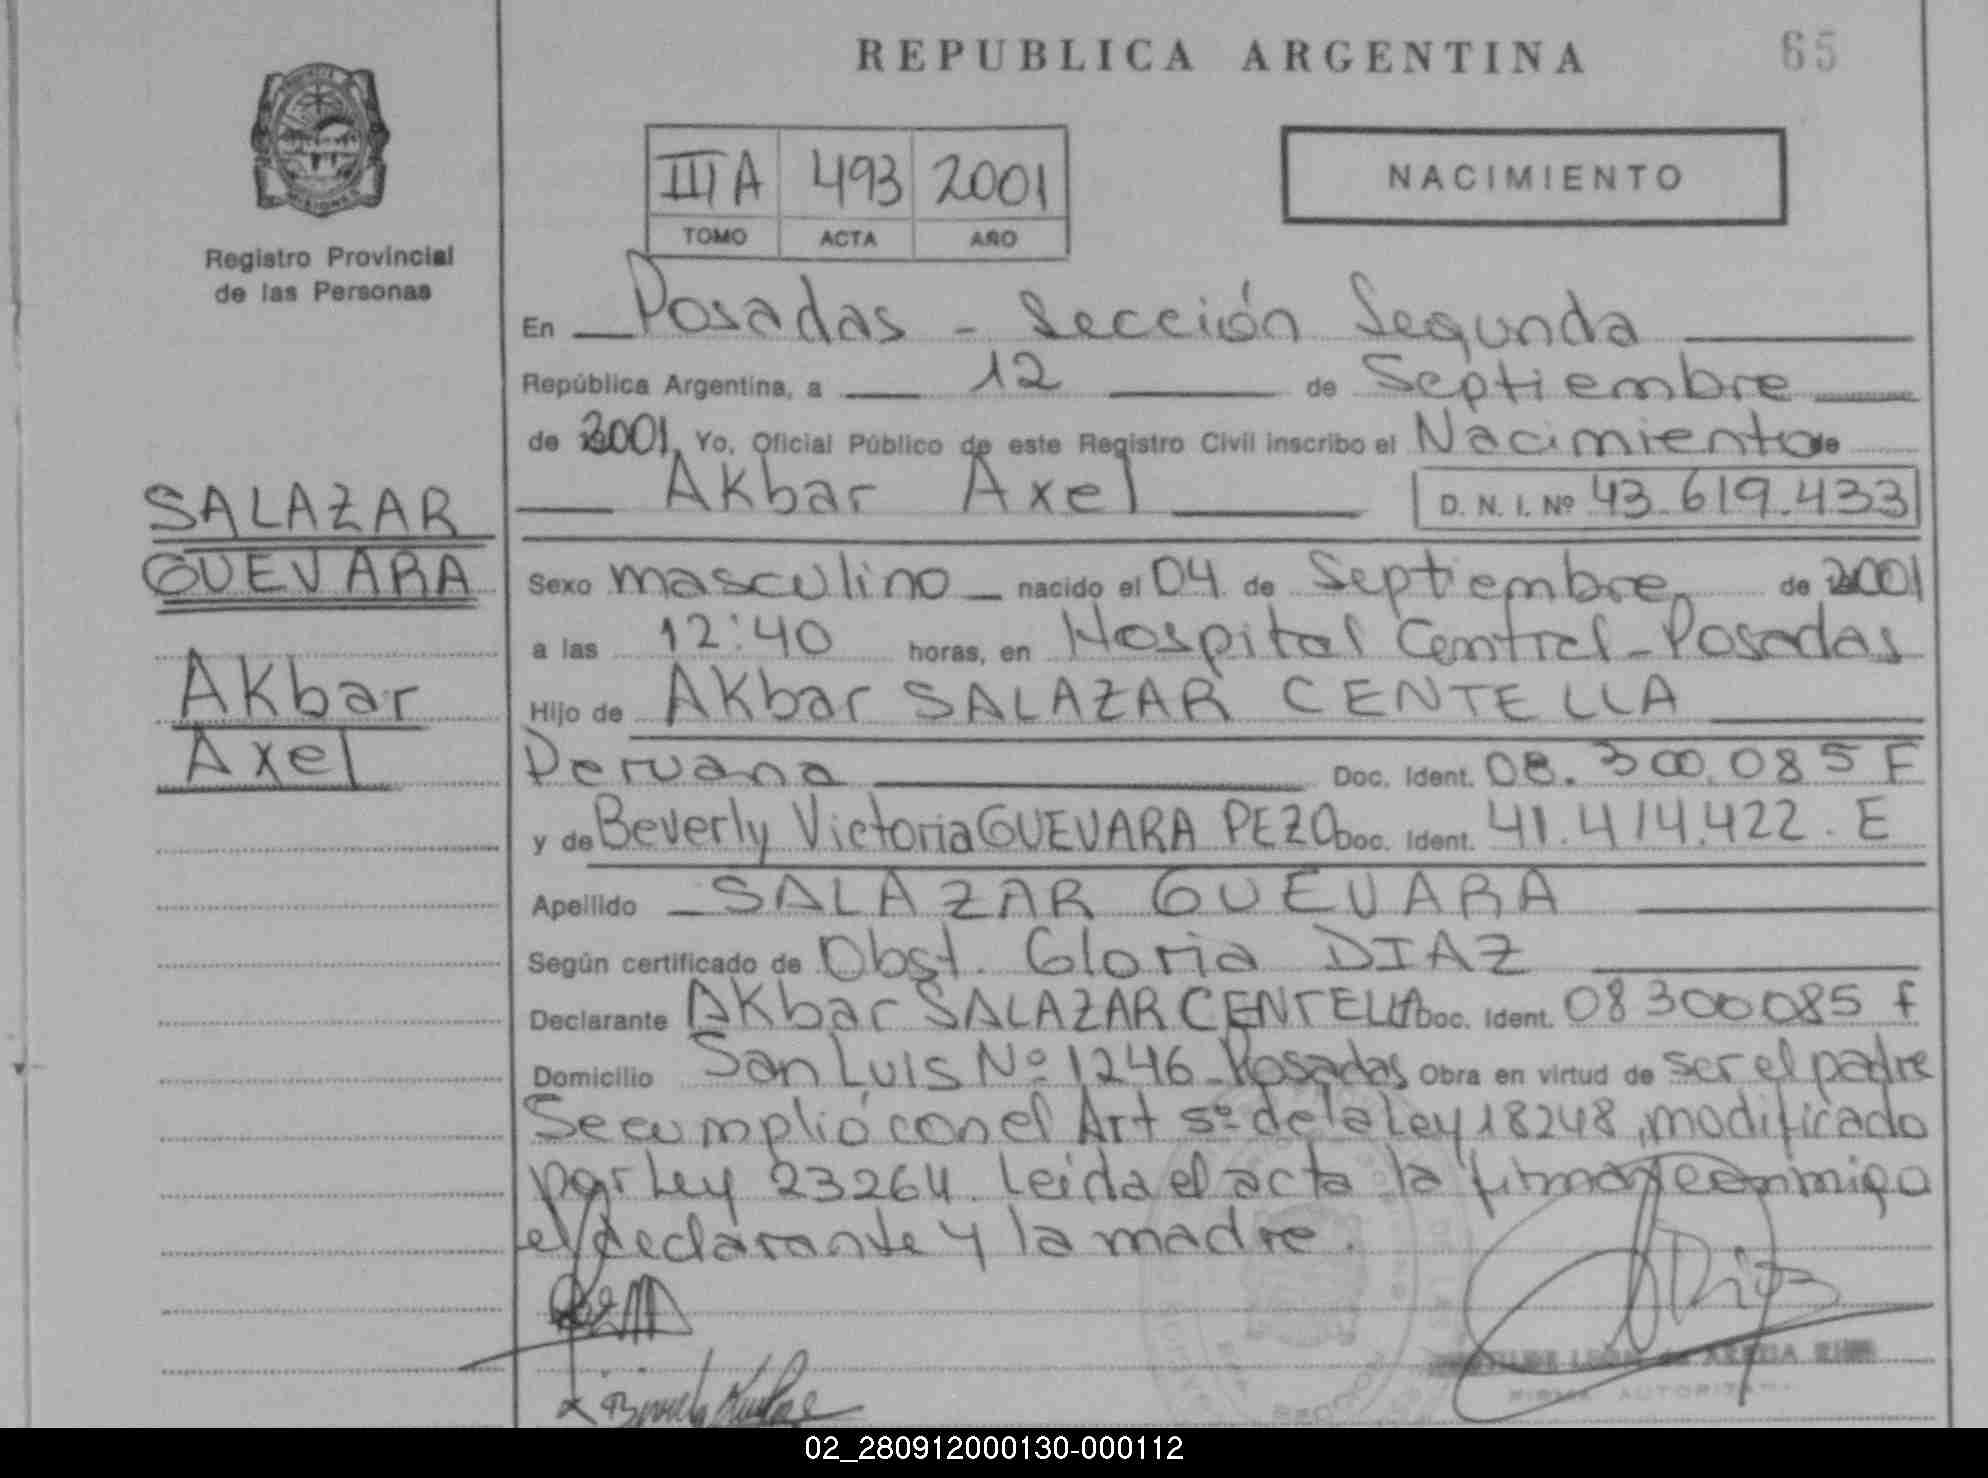 REPUBLICA ARGENTINA
65
Registro Provincial
de las Personas
III A 493 2001
TOMO ACTA AÑO
NACIMIENTO
En Posadas - Sección Segunda
República Argentina, a 12 de Septiembre
de 2001, Yo, Oficial Público de este Registro Civil inscribo el Nacimiento de
Akbar Axel D. N. I. Nº 43.619.433
SALAZAR
GUEVARA
Akbar
Axel
Sexo masculino nacido el 04 de Septiembre de 2001
a las 12:40 horas, en Hospital Central - Posadas
Hijo de Akbar SALAZAR CENTELLA
Peruana Doc. Ident. 08.300.085 F
y de Beverly Victoria GUEVARA PEZO Doc. Ident. 41.414.422. E
Apellido SALAZAR GUEVARA
Según certificado de Obst. Gloria DIAZ
Declarante Akbar SALAZAR CENTELLA Doc. Ident. 08300085 F
Domicilio San Luis Nº 1246 - Posadas Obra en virtud de ser el padre
Se cumplió con el Art 5º de la Ley 18248, modificado
por Ley 23264. Leida el acta la firman conmigo
el declarante y la madre.
FIRMA AUTORIZADA
02_280912000130-000112